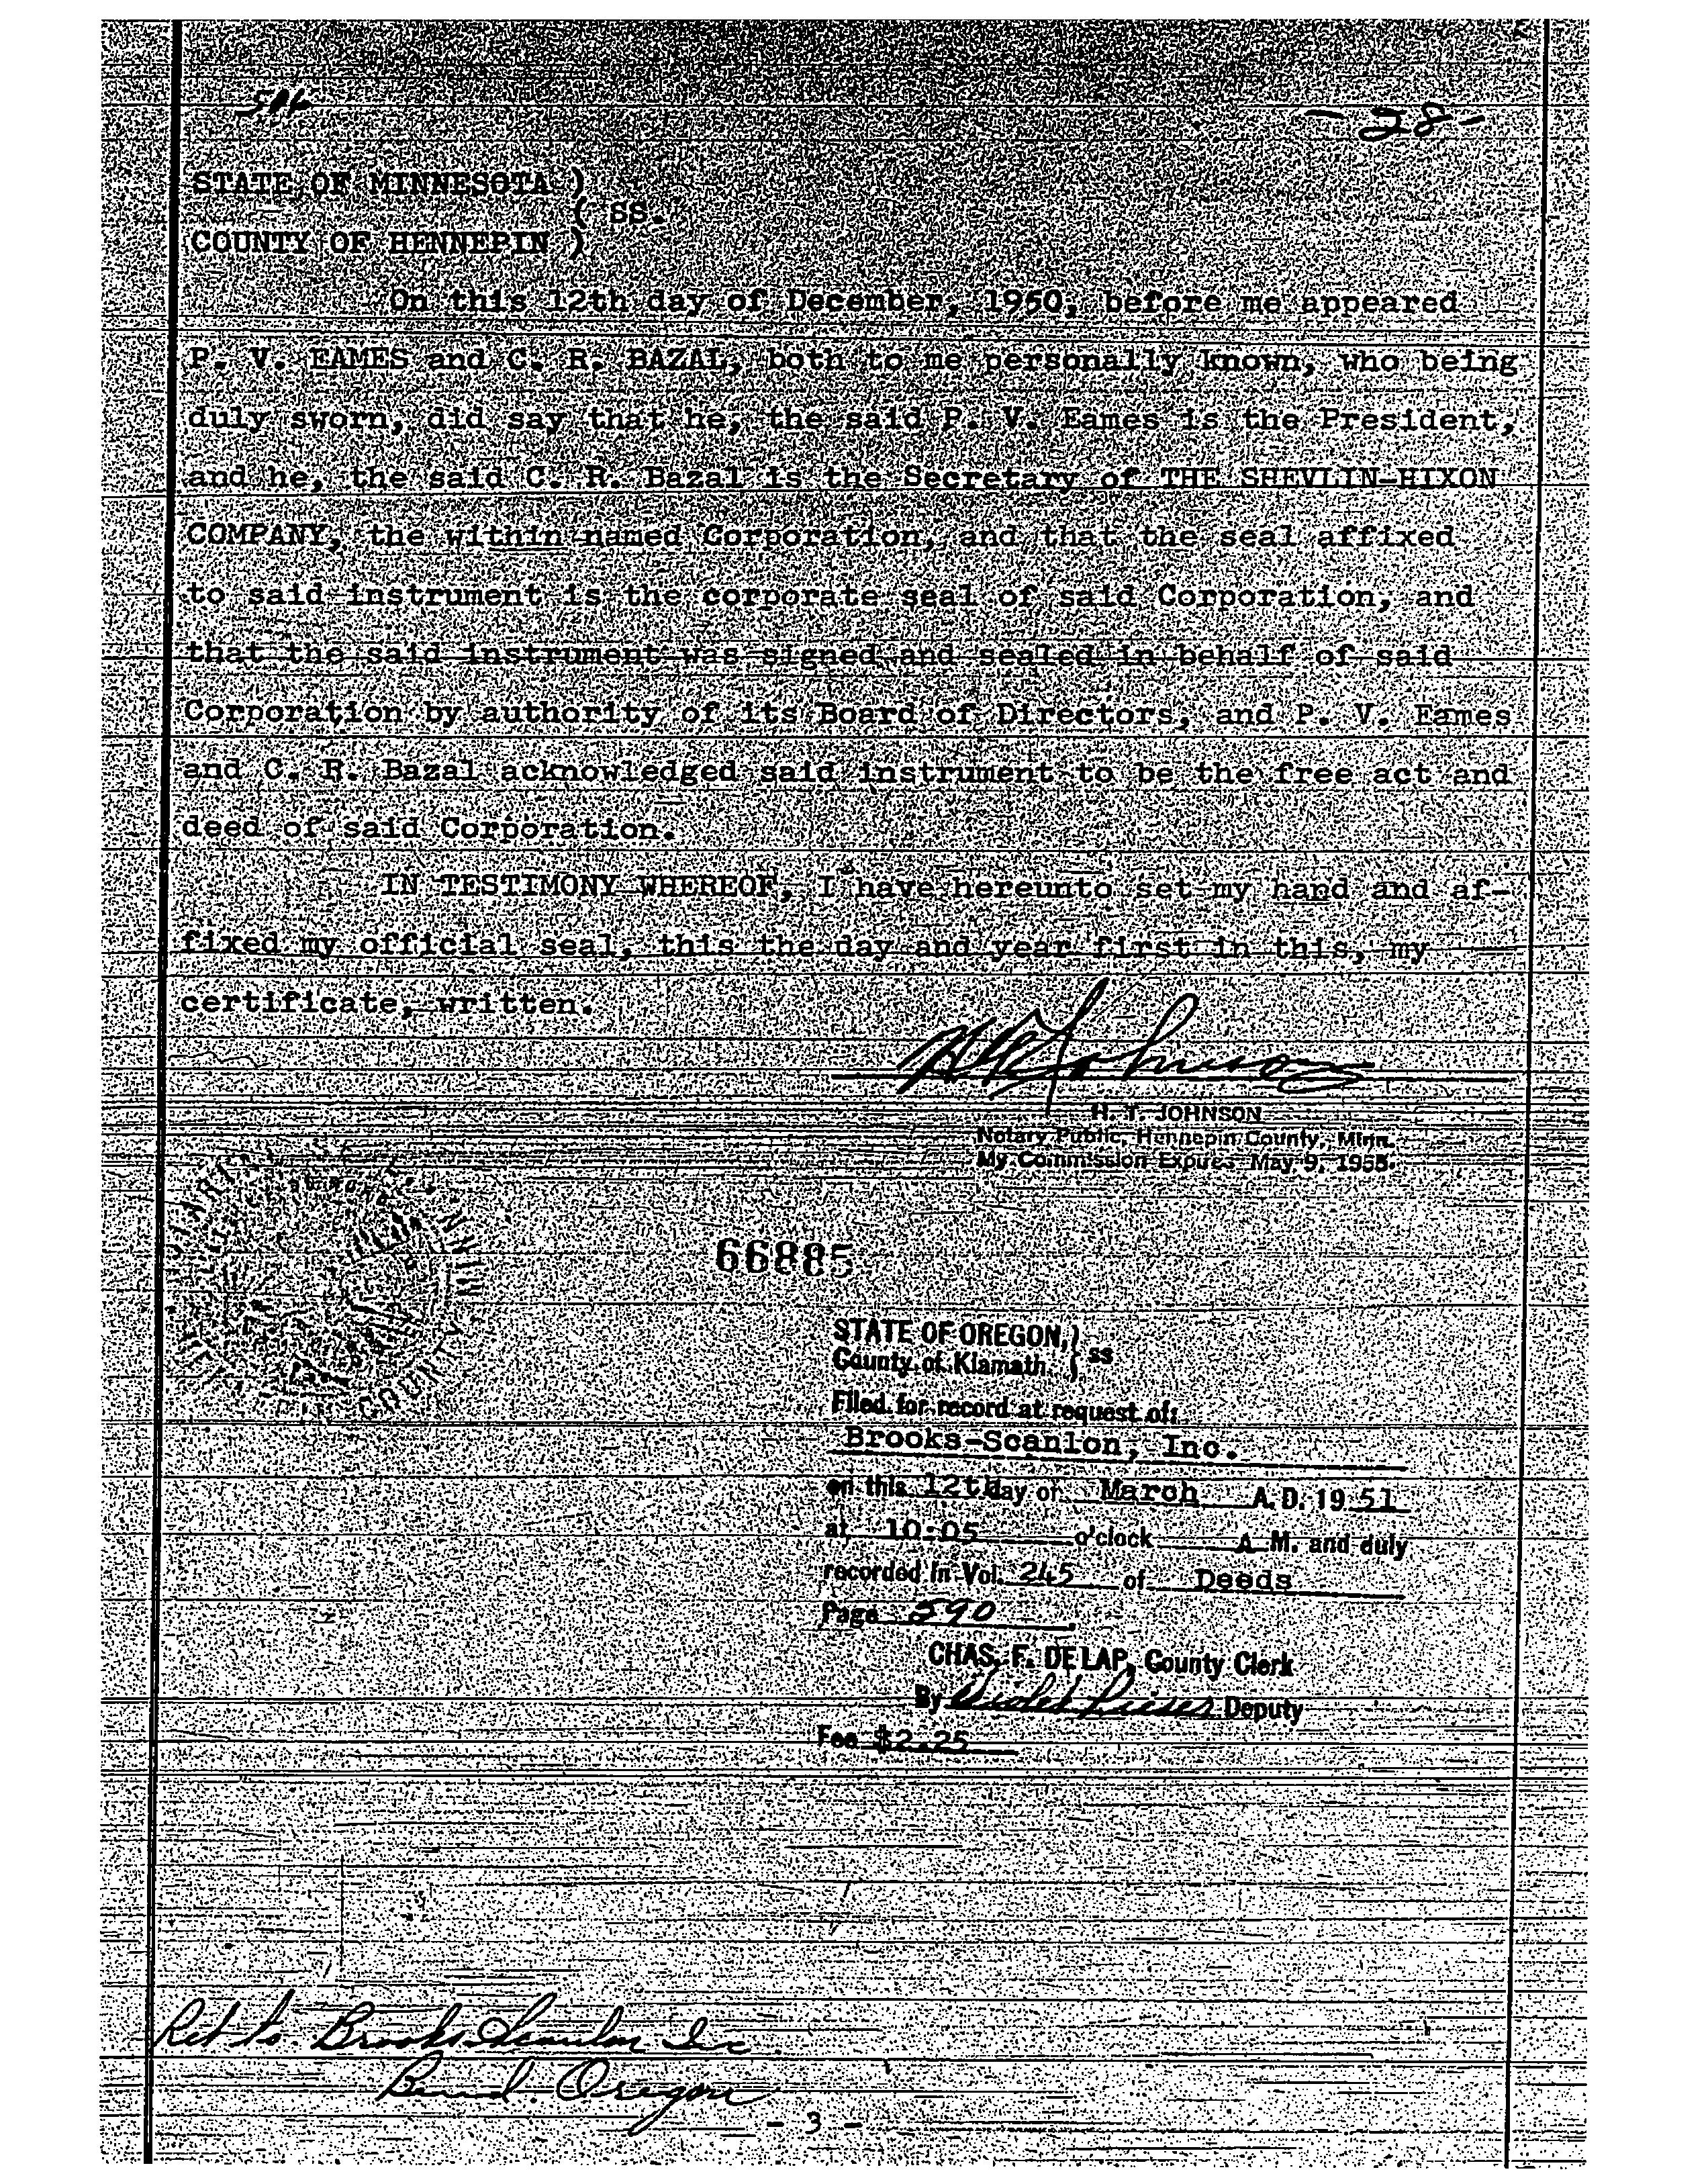 - 28 -
STATE OF MINNESOTA )
( SS.
COUNTY OF HENNEPIN )
On this 12th day of December, 1950, before me appeared
P. V. EAMES and C. R. BAZAL, both to me personally known, who being
duly sworn, did say that he, the said P. V. Eames is the President,
and he, the said C. R. Bazal is the Secretary of THE SHEVLIN-HIXON
COMPANY, the within named Corporation, and that the seal affixed
to said instrument is the corporate seal of said Corporation, and
that the said instrument was signed and sealed in behalf of said
Corporation by authority of its Board of Directors, and P. V. Eames
and C. R. Bazal acknowledged said instrument to be the free act and
deed of said Corporation.
IN TESTIMONY WHEREOF, I have hereunto set my hand and af-
fixed my official seal, this the day and year first in this, my
certificate, written.
H. T. Johnson
H. T. JOHNSON
Notary Public, Hennepin County, Minn.
My Commission Expires May 9, 1955.
COUNTY
66885
STATE OF OREGON, )
County of Klamath. ) ss
Filed for record at request of:
Brooks-Scanlon, Inc.
on this 12th day of March A. D. 19 51
at 10:05 o'clock A M. and duly
recorded in Vol. 245 of Deeds
Page 590
CHAS. F. DE LAP, County Clerk
By Deputy
Fee $2.25
Ret to Brooks Scanlon Inc
Bend. Oregon
- 3 -